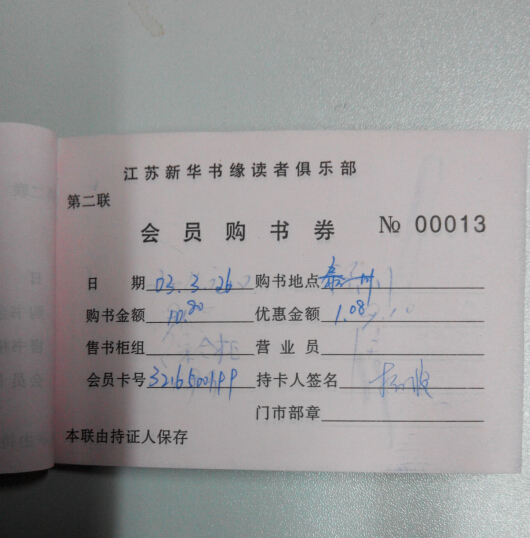 江苏新华书缘读者俱乐部
第二联
会员购书券 № 00013
日期 03.3.26 购书地点 泰州
购书金额 10.80 优惠金额 1.08
售书柜组 营业员
会员卡号 持卡人签名
门市部章
本联由持证人保存